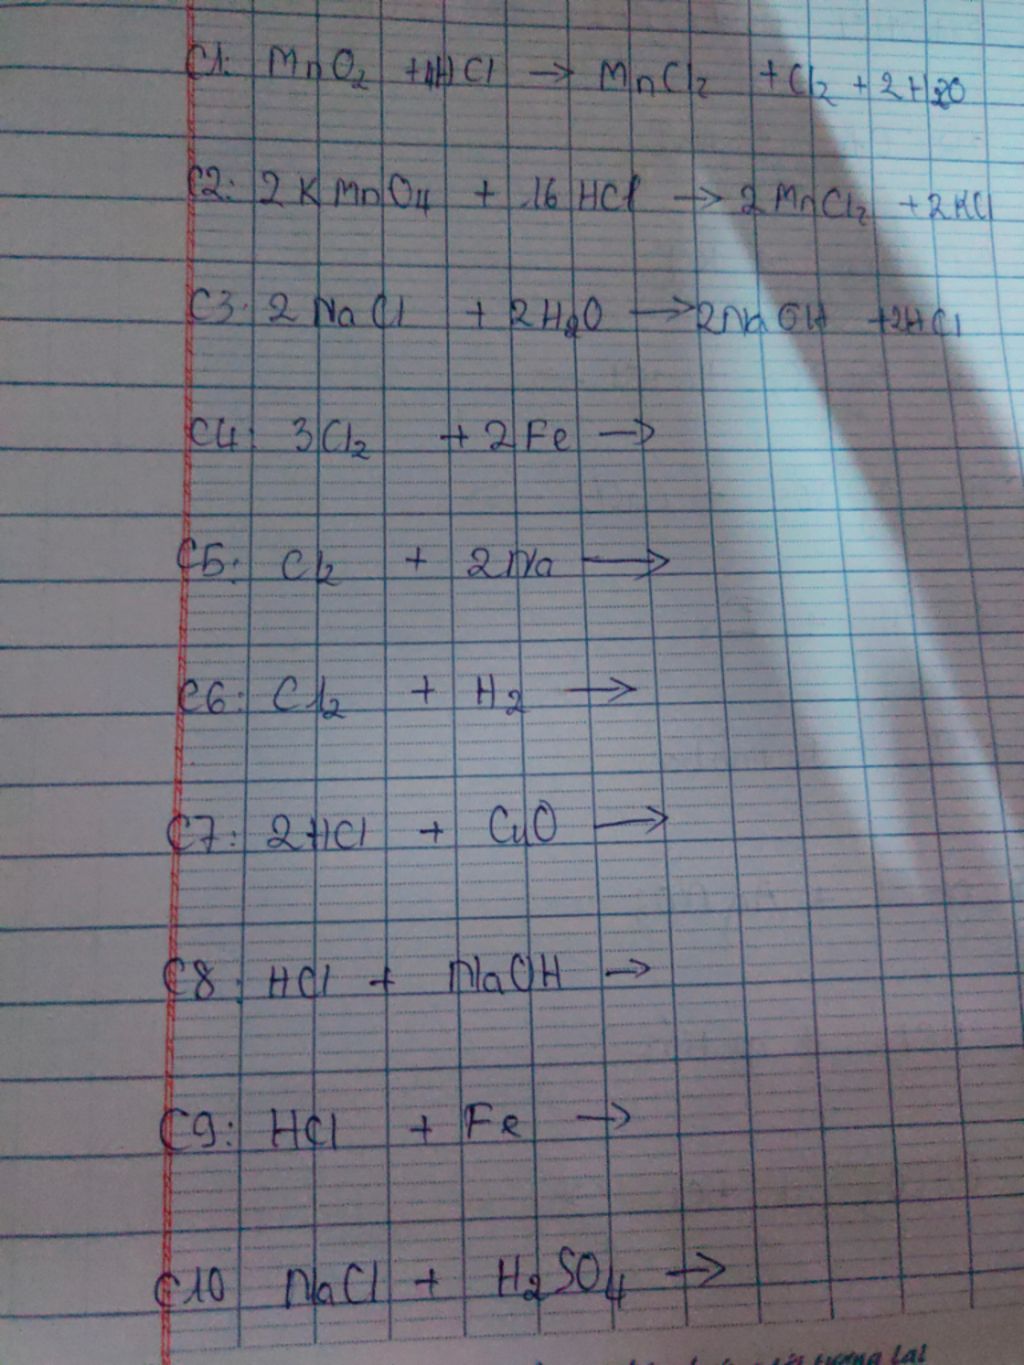 C1: MnO2 + 4HCl → MnCl2 + Cl2 + 2H2O
C2: 2KMnO4 + 16HCl → 2MnCl2 + 2KCl
C3: 2NaCl + 2H2O → 2NaOH + 2HCl
C4: 3Cl2 + 2Fe →
C5: Cl2 + 2Na →
C6: Cl2 + H2 →
C7: 2HCl + CuO →
C8: HCl + NaOH →
C9: HCl + Fe →
C10 NaCl + H2SO4 →